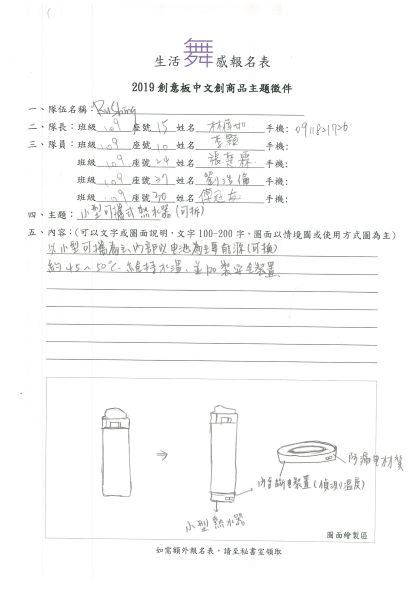 生活舞感報名表
2019創意板中文創商品主題徵件
一、隊伍名稱:Rushing
二、隊長:班級 109 座號 15 姓名 手機:
三、隊員:班級 109 座號 10 姓名 李顥 手機:
班級 109 座號 24 姓名 張楚霖 手機:
班級 109 座號 27 姓名 劉 手機:
班級 109 座號 30 姓名 手機:
四、主題:小型可攜式熱水器(可拆)
五、內容:(可以文字或圖面說明,文字100-200字,圖面以情境圖或使用方式圖為主)
以小型可攜為主,內部以電池為主要能源(可換)
約45~50℃ 維持水溫,並加裝安全裝置.
防漏電材質
內含斷電裝置(偵測溫度)
小型熱水器
圖面繪製區
如需額外報名表,請至秘書室領取